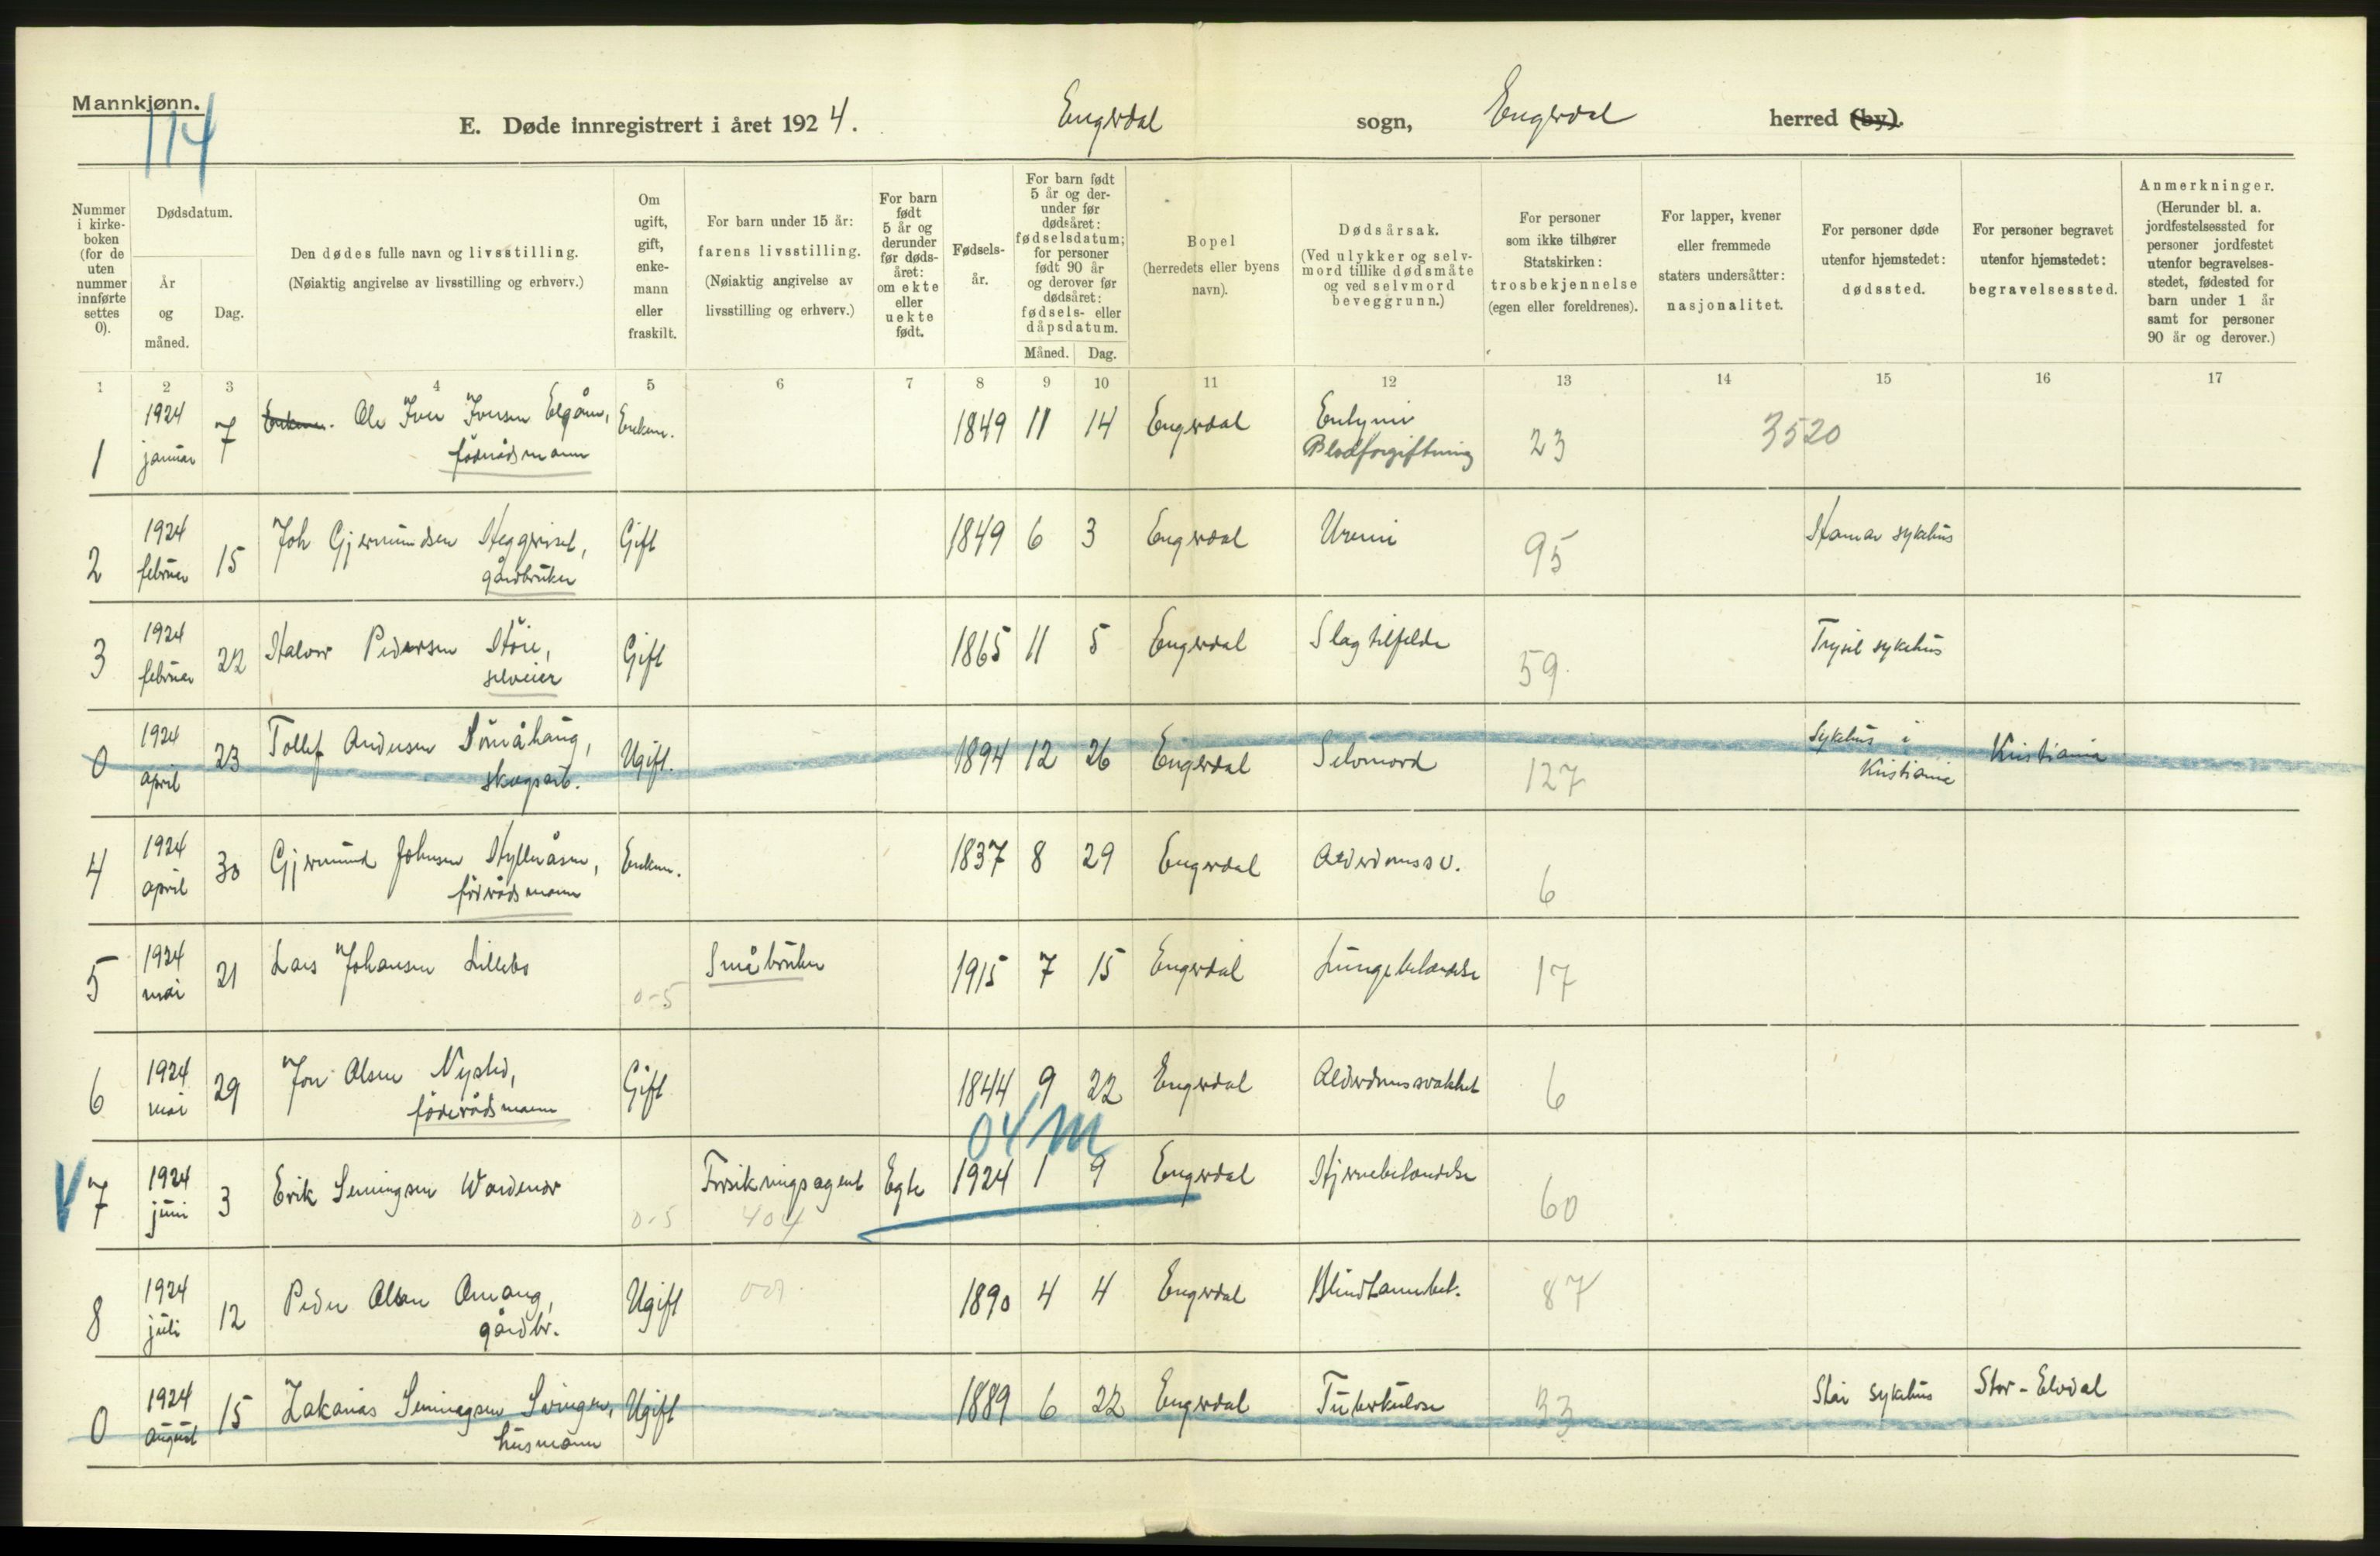 Mannkjønn.
114
E. Døde innregistrert i året 1924. Engerdal sogn, Engerdal herred (by).
Nummer i kirke-boken (for de uten nummer innførte settes 0).
Dødsdatum.
År og måned.
Dag.
Den dødes fulle navn og livsstilling.
(Nøiaktig angivelse av livsstilling og erhverv.)
Om ugift, gift, enke-mann eller fraskilt.
For barn under 15 år:
farens livsstilling.
(Nøiaktig angivelse av livsstilling og erhverv.)
For barn født 5 år og derunder før døds-året: om ekte eller uekte født.
Fødsels-år.
For barn født 5 år og der-under før dødsåret: fødselsdatum; for personer født 90 år og derover før dødsåret: fødsels- eller dåpsdatum.
Måned. Dag.
Bopel (herredets eller byens navn).
Dødsårsak.
(Ved ulykker og selv-mord tillike dødsmåte og ved selvmord beveggrunn.)
For personer som ikke tilhører Statskirken: trosbekjennelse (egen eller foreldrenes).
For lapper, kvener eller fremmede staters undersåtter: nasjonalitet.
For personer døde utenfor hjemstedet: dødssted.
For personer begravet utenfor hjemstedet: begravelsessted.
Anmerkninger.
(Herunder bl. a. jordfestelsessted for personer jordfestet utenfor begravelses-stedet, fødested for barn under 1 år samt for personer 90 år og derover.)
1 2 3 4 5 6 7 8 9 10 11 12 13 14 15 16 17
1 1924 januar 7 Ole Iver Iversen Elgåen, Enkem. 1849 11 14 Engerdal
föderådsmann Blodforgiftning 23 3520
2 1924 februar 15 Joh Gjermundsen Heggeriset, Gift 1849 6 3 Engerdal Uremi 95 Hamar sykehus
gårdbruker
3 1924 februar 22 Halvor Pedersen Höie, Gift 1865 11 5 Engerdal Slagtilfelde 59. Trysil sykehus
selveier
0 1924 april 23 Tollef Andersen Ugift. 1894 12 26 Engerdal Selvmord 127 Sykehus i Kristiania Kristiania
skogsarb.
4 1924 april 30 Gjermund Johnsen Hylleråsen, Enkem. 1837 8 29 Engerdal Alderdomssv. 6
föderådsmann
5 1924 mai 21 Lars Johansen Lillebo 0-5 Småbruker 1915 7 15 Engerdal Lungebetændelse 17
6 1924 mai 29 Jon Olsen Nysted, Gift 1844 9 22 Engerdal Alderdomssvakhet 6
föderådsmann
04 m
V 7 1924 juni 3 Erik Semingsen Wardenær 0-5 Forsikringsagent 404 Egte 1924 1 9 Engerdal Hjernebetændelse 60
8 1924 juli 12 Peder Olsen Omang, Ugift 1890 4 4 Engerdal Blindtarmbet. 87
gårdbr.
0 1924 august 15 Zakarias Semingsen Svingen, Ugift 1889 6 22 Engerdal Tuberkulose 33 Stai sykehus Stor-Elvdal
husmann